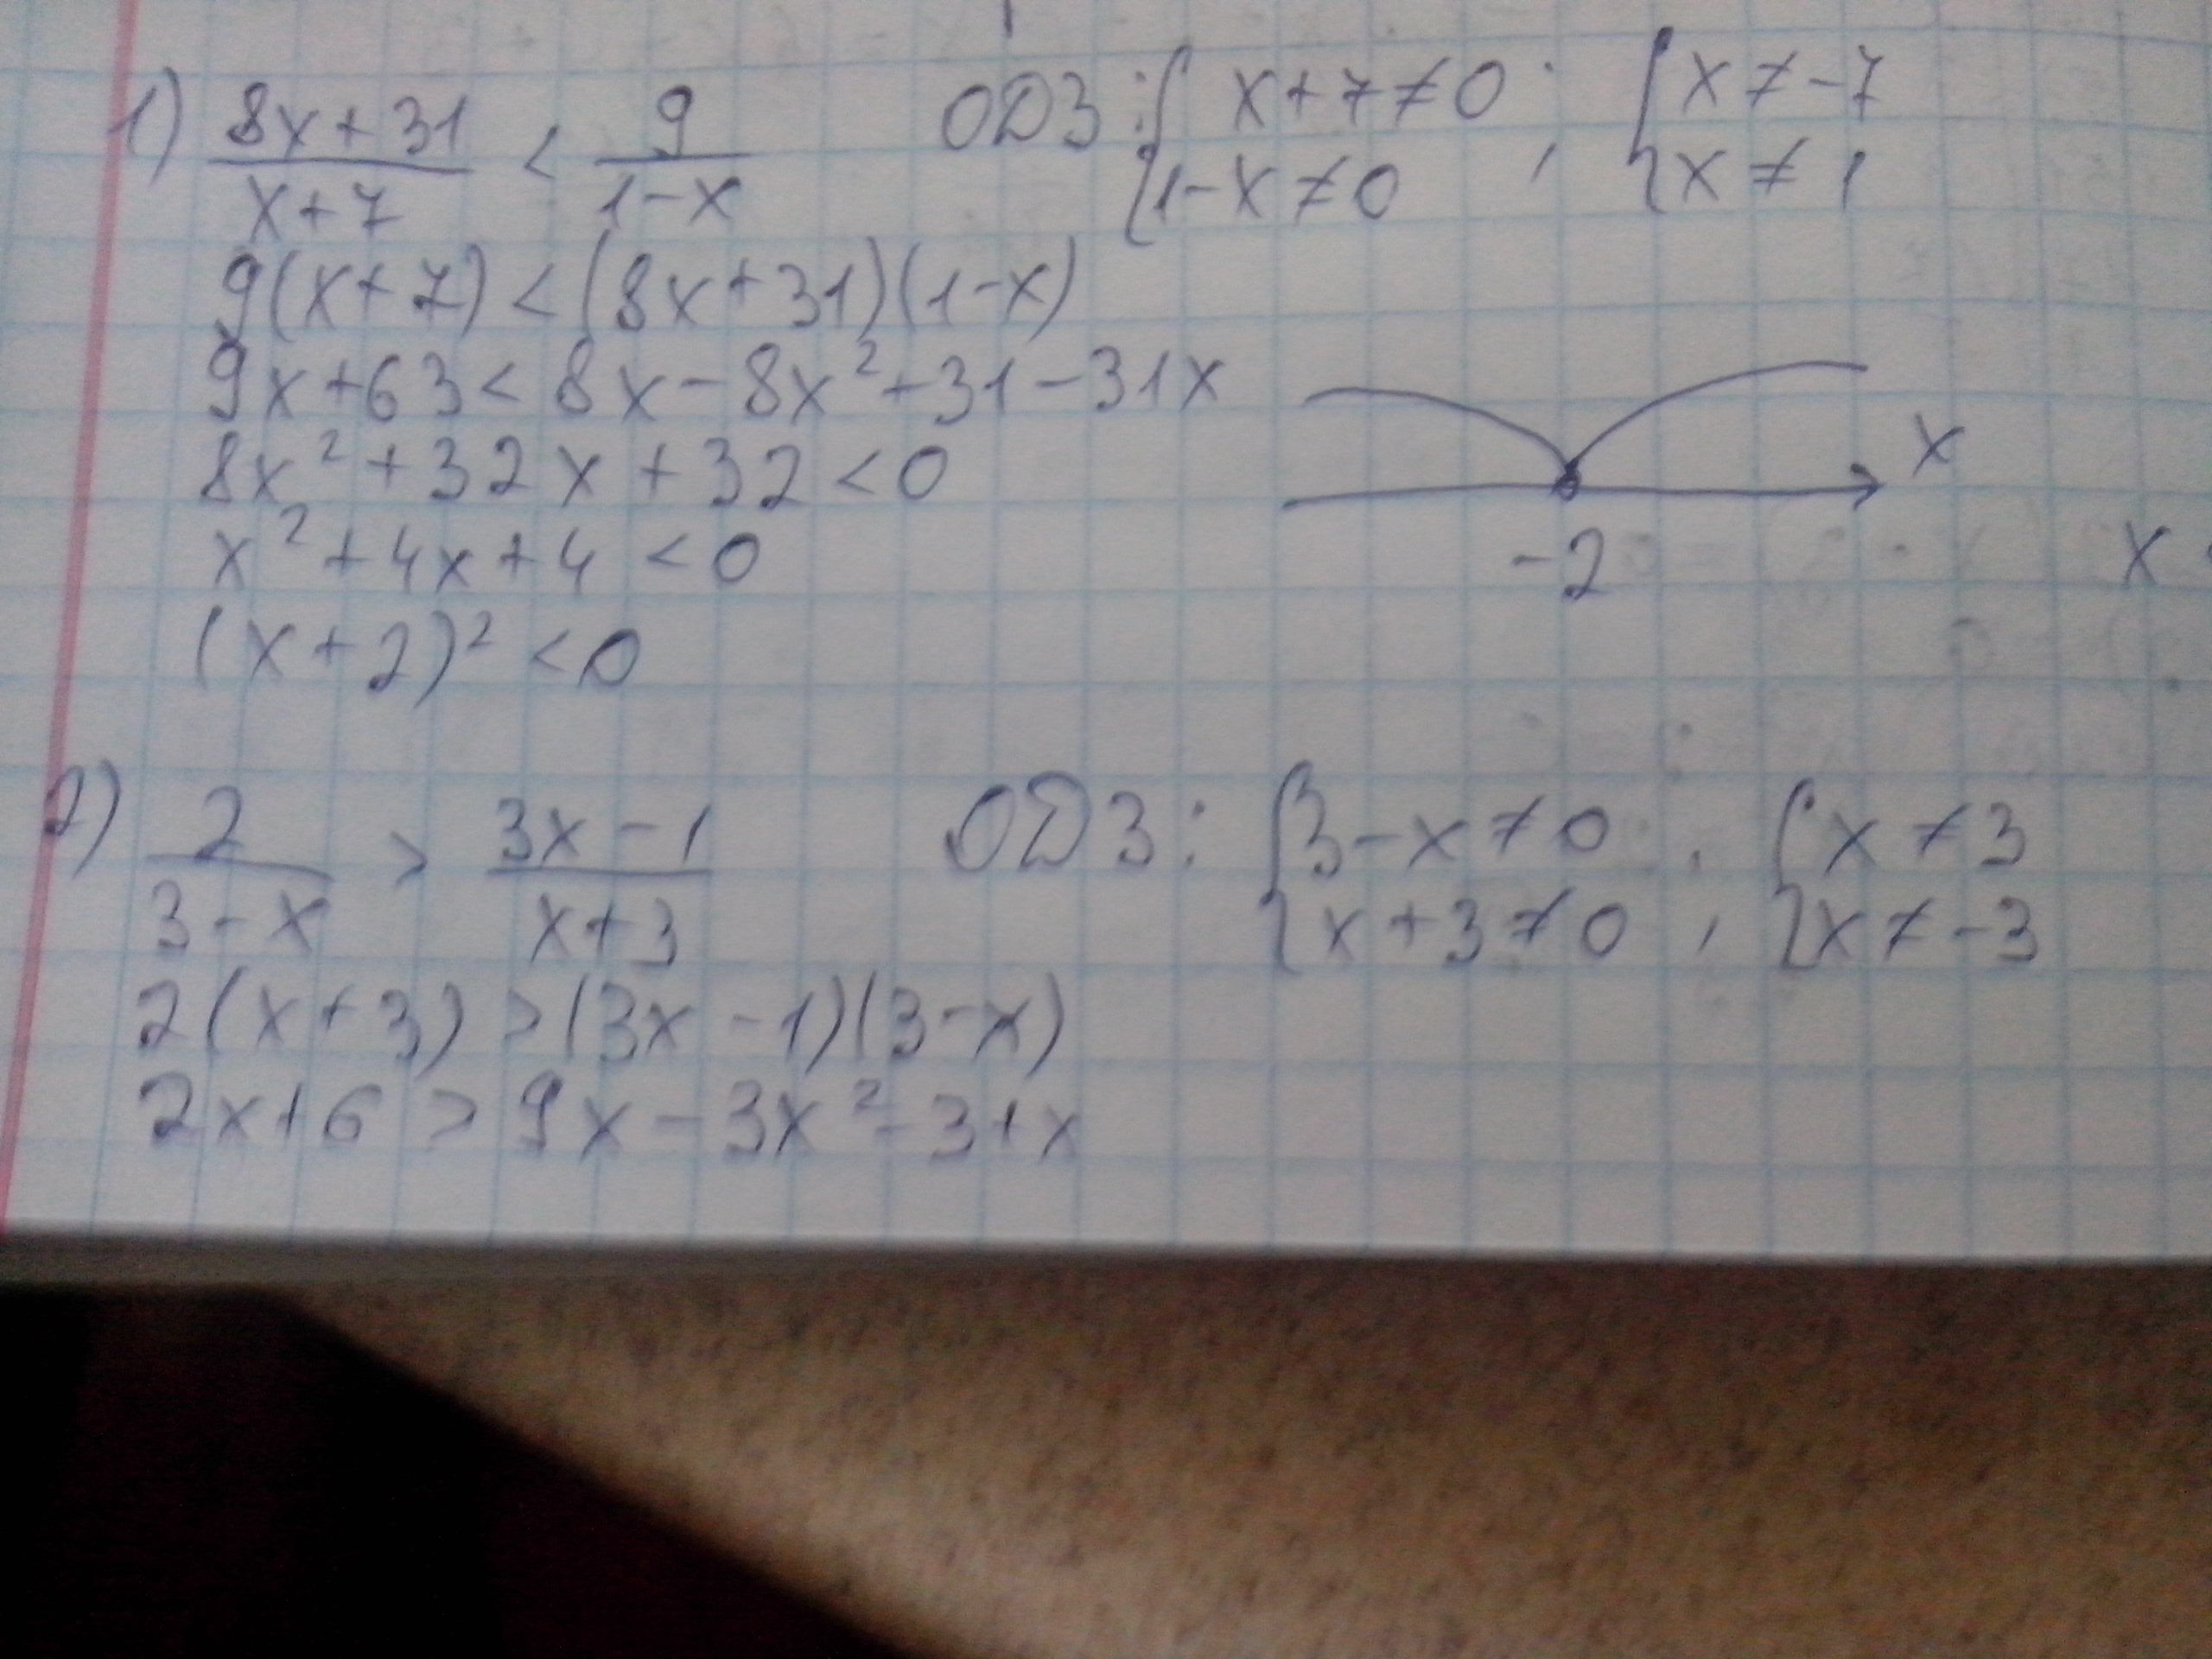 1) (8x+31)/(x+7) < 9/(1-x) ОДЗ: { x+7≠0 ; 1-x≠0 , { x≠-7 ; x≠1
9(x+7)<(8x+31)(1-x)
9x+63<8x-8x²+31-31x
8x²+32x+32<0
x
x²+4x+4<0
-2
x
(x+2)²<0
2) 2/(3-x) > (3x-1)/(x+3) ОДЗ: { 3-x≠0 ; x+3≠0 , { x≠3 ; x≠-3
2(x+3)>(3x-1)(3-x)
2x+6>9x-3x²-3+x